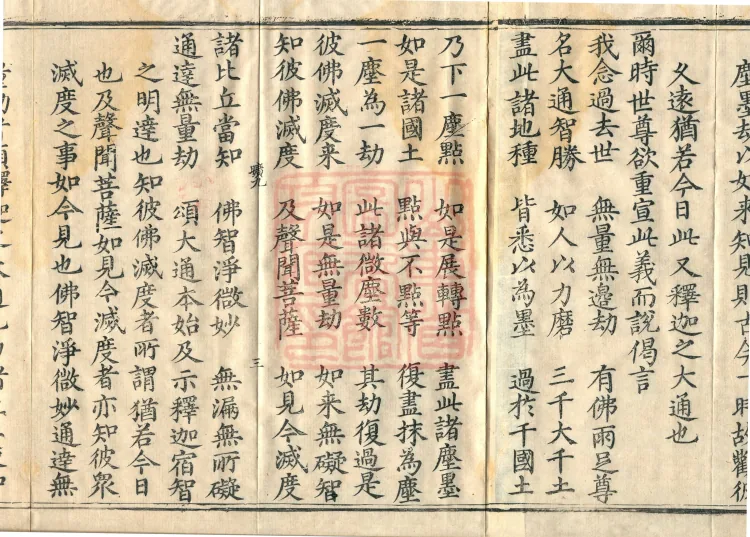 塵墨劫以如來知見則古今一時故觀彼
久遠猶若今日此又釋迦之大通也
爾時世尊欲重宣此義而說偈言
我念過去世　無量無邊劫　有佛兩足尊
名大通智勝　如人以力磨　三千大千土
盡此諸地種　皆悉以為墨　過於千國土
乃下一塵點　如是展轉點　盡此諸塵墨
如是諸國土　點與不點等　復盡抹為塵
一塵為一劫　此諸微塵數　其劫復過是
彼佛滅度來　如是無量劫　如來無礙智
知彼佛滅度　及聲聞菩薩　如見今滅度
三
諸比丘當知　佛智淨微妙　無漏無所礙
通達無量劫　頌大通本始及示釋迦宿智
之明達也知彼佛滅度者所謂猶若今日
也及聲聞菩薩如見今滅度者亦知彼眾
滅度之事如今見也佛智淨微妙通達無